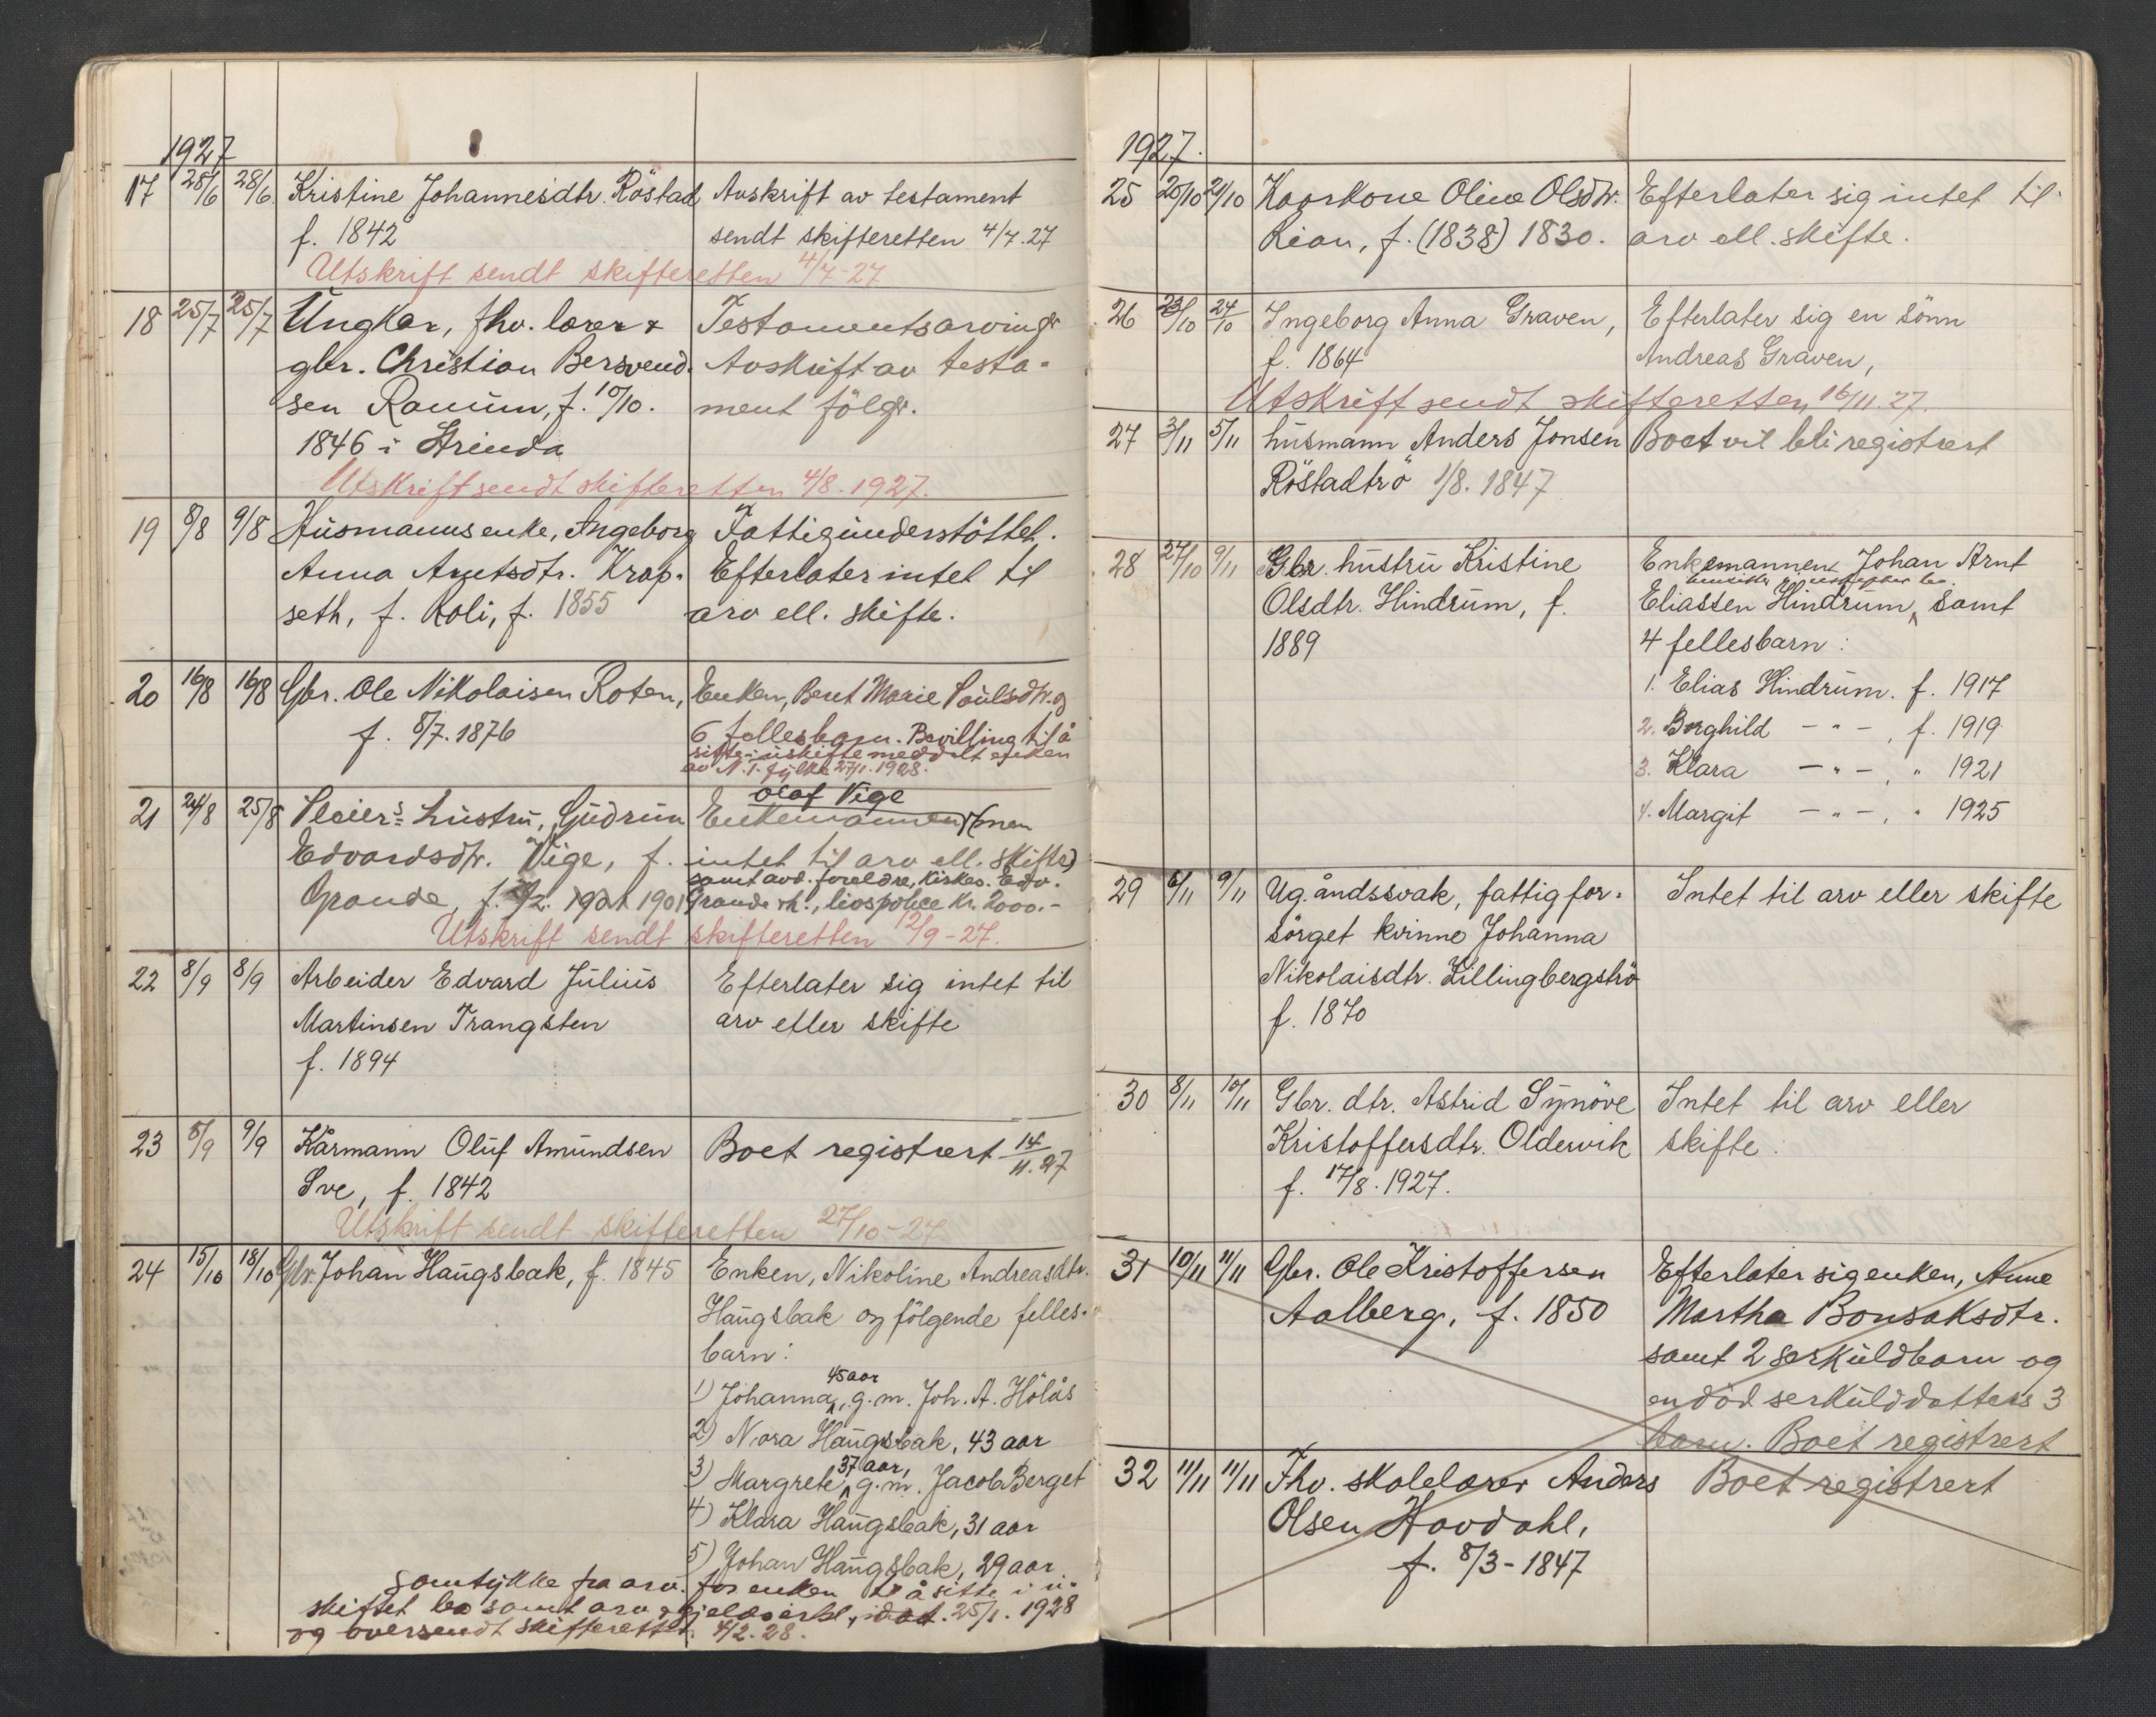 1927
17 28/6 28/6 Kristine Johannesdtr. Röstad Avskrift av testament
f. 1842 sendt skifteretten 4/7.27
Utskrift sendt skifteretten 4/7-27
18 25/7 25/7 Ungkar, fhv. lærer & Testamentsarvinger
gbr. Christian Bersvend- Avskrift av testa-
sen Ranum, f. 10/10. ment følger.
1846 i Strinda
Utskrift sendt skifteretten 4/8. 1927.
19 8/8 9/8 Husmannsenke, Ingeborg Fattigunderstöttet.
Anna Arntsdtr. Krop- Efterlater intet til
seth, f. Roli, f. 1855 arv ell. skifte.
20 16/8 16/8 Gbr. Ole Nikolaisen Roten, Enken, Beret Marie Paulsdtr. og
f. 8/7. 1876 6 fellesbarn. Bevilling til å
sitte i uskifte meddelt enken
av N. T. fylke 27/1. 1928.
Olaf Vige
21 24/8 25/8 Pleiers hustru, Gudrun Enkemannen (men
Edvardsdtr. Vige, f. intet til arv ell. skifte)
samt avd. foreldre, kirkes. Edv.
Grande, f. 1901 Grande livspolice kr. 2000.-
Utskrift sendt skifteretten 12/9-27.
22 8/9 8/9 Arbeider Edvard Julius Efterlater sig intet til
Martinsen Trangsten arv eller skifte
f. 1894
23 5/9 9/9 Kårmann Oluf Amundsen Boet registrert 14/11.27
Sve, f. 1842
Utskrift sendt skifteretten 27/10-27
24 15/10 18/10 Gbr. Johan Haugsbak, f. 1845 Enken, Nikoline Andreasdtr.
Haugsbak og følgende felles-
barn:
45 aar
1) Johanna, g.m. Joh. A. Hölås
2) Nora Haugsbak, 43 aar
37 aar,
3) Margrete, g.m. Jacob Berget
4) Klara Haugsbak, 31 aar
5) Johan Haugsbak, 29 aar
Samtykke fra arv. for enken til å sitte i u-
skiftet bo samt arv & gjeldserkl., dat. 25/1. 1928
og oversendt skifteretten 4/2. 28.
1927.
25 20/10 21/10 Kaarkone Oline Olsdtr. Efterlater sig intet til
Rian, f. (1838) 1830. arv ell. skifte.
26 23/10 24/10 Ingeborg Anna Graven, Efterlater sig en sönn
f. 1864 Andreas Graven,
Utskrift sendt skifteretten 16/11.27.
27 3/11 5/11 husmann Anders Jonsen Boet vil bli registrert
Röstadtrö 1/8. 1847
28 27/10 9/11 Gbr. hustru Kristine Enkemannen Johan Arnt
hensitter i uskiftet bo.
Olsdtr. Hindrum, f. Eliassen Hindrum, samt
1889 4 fellesbarn:
1. Elias Hindrum. f. 1917
2. Borghild - " - , f. 1919
3. Klara - " - , " 1921
4. Margit - " - , " 1925
29 6/11 9/11 Ug. åndssvak, fattigfor- Intet til arv eller skifte
sörget kvinne Johanna
Nikolaisdtr. Killingbergströ
f. 1870
30 8/11 10/11 Gbr. dtr. Astrid Synöve Intet til arv eller
Kristoffersdtr. Oldervik skifte.
f. 17/8. 1927.
31 10/11 11/11 Gbr. Ole Kristoffersen Efterlater sig enken, Anne
Aalberg, f. 1850 Martha Bonsaksdtr.
samt 2 serkuldbarn og
en död serkulddatters 3
barn. Boet registrert
32 11/11 11/11 Fhv. skolelærer Anders Boet registrert
Olsen Hovdahl,
f. 8/3-1847